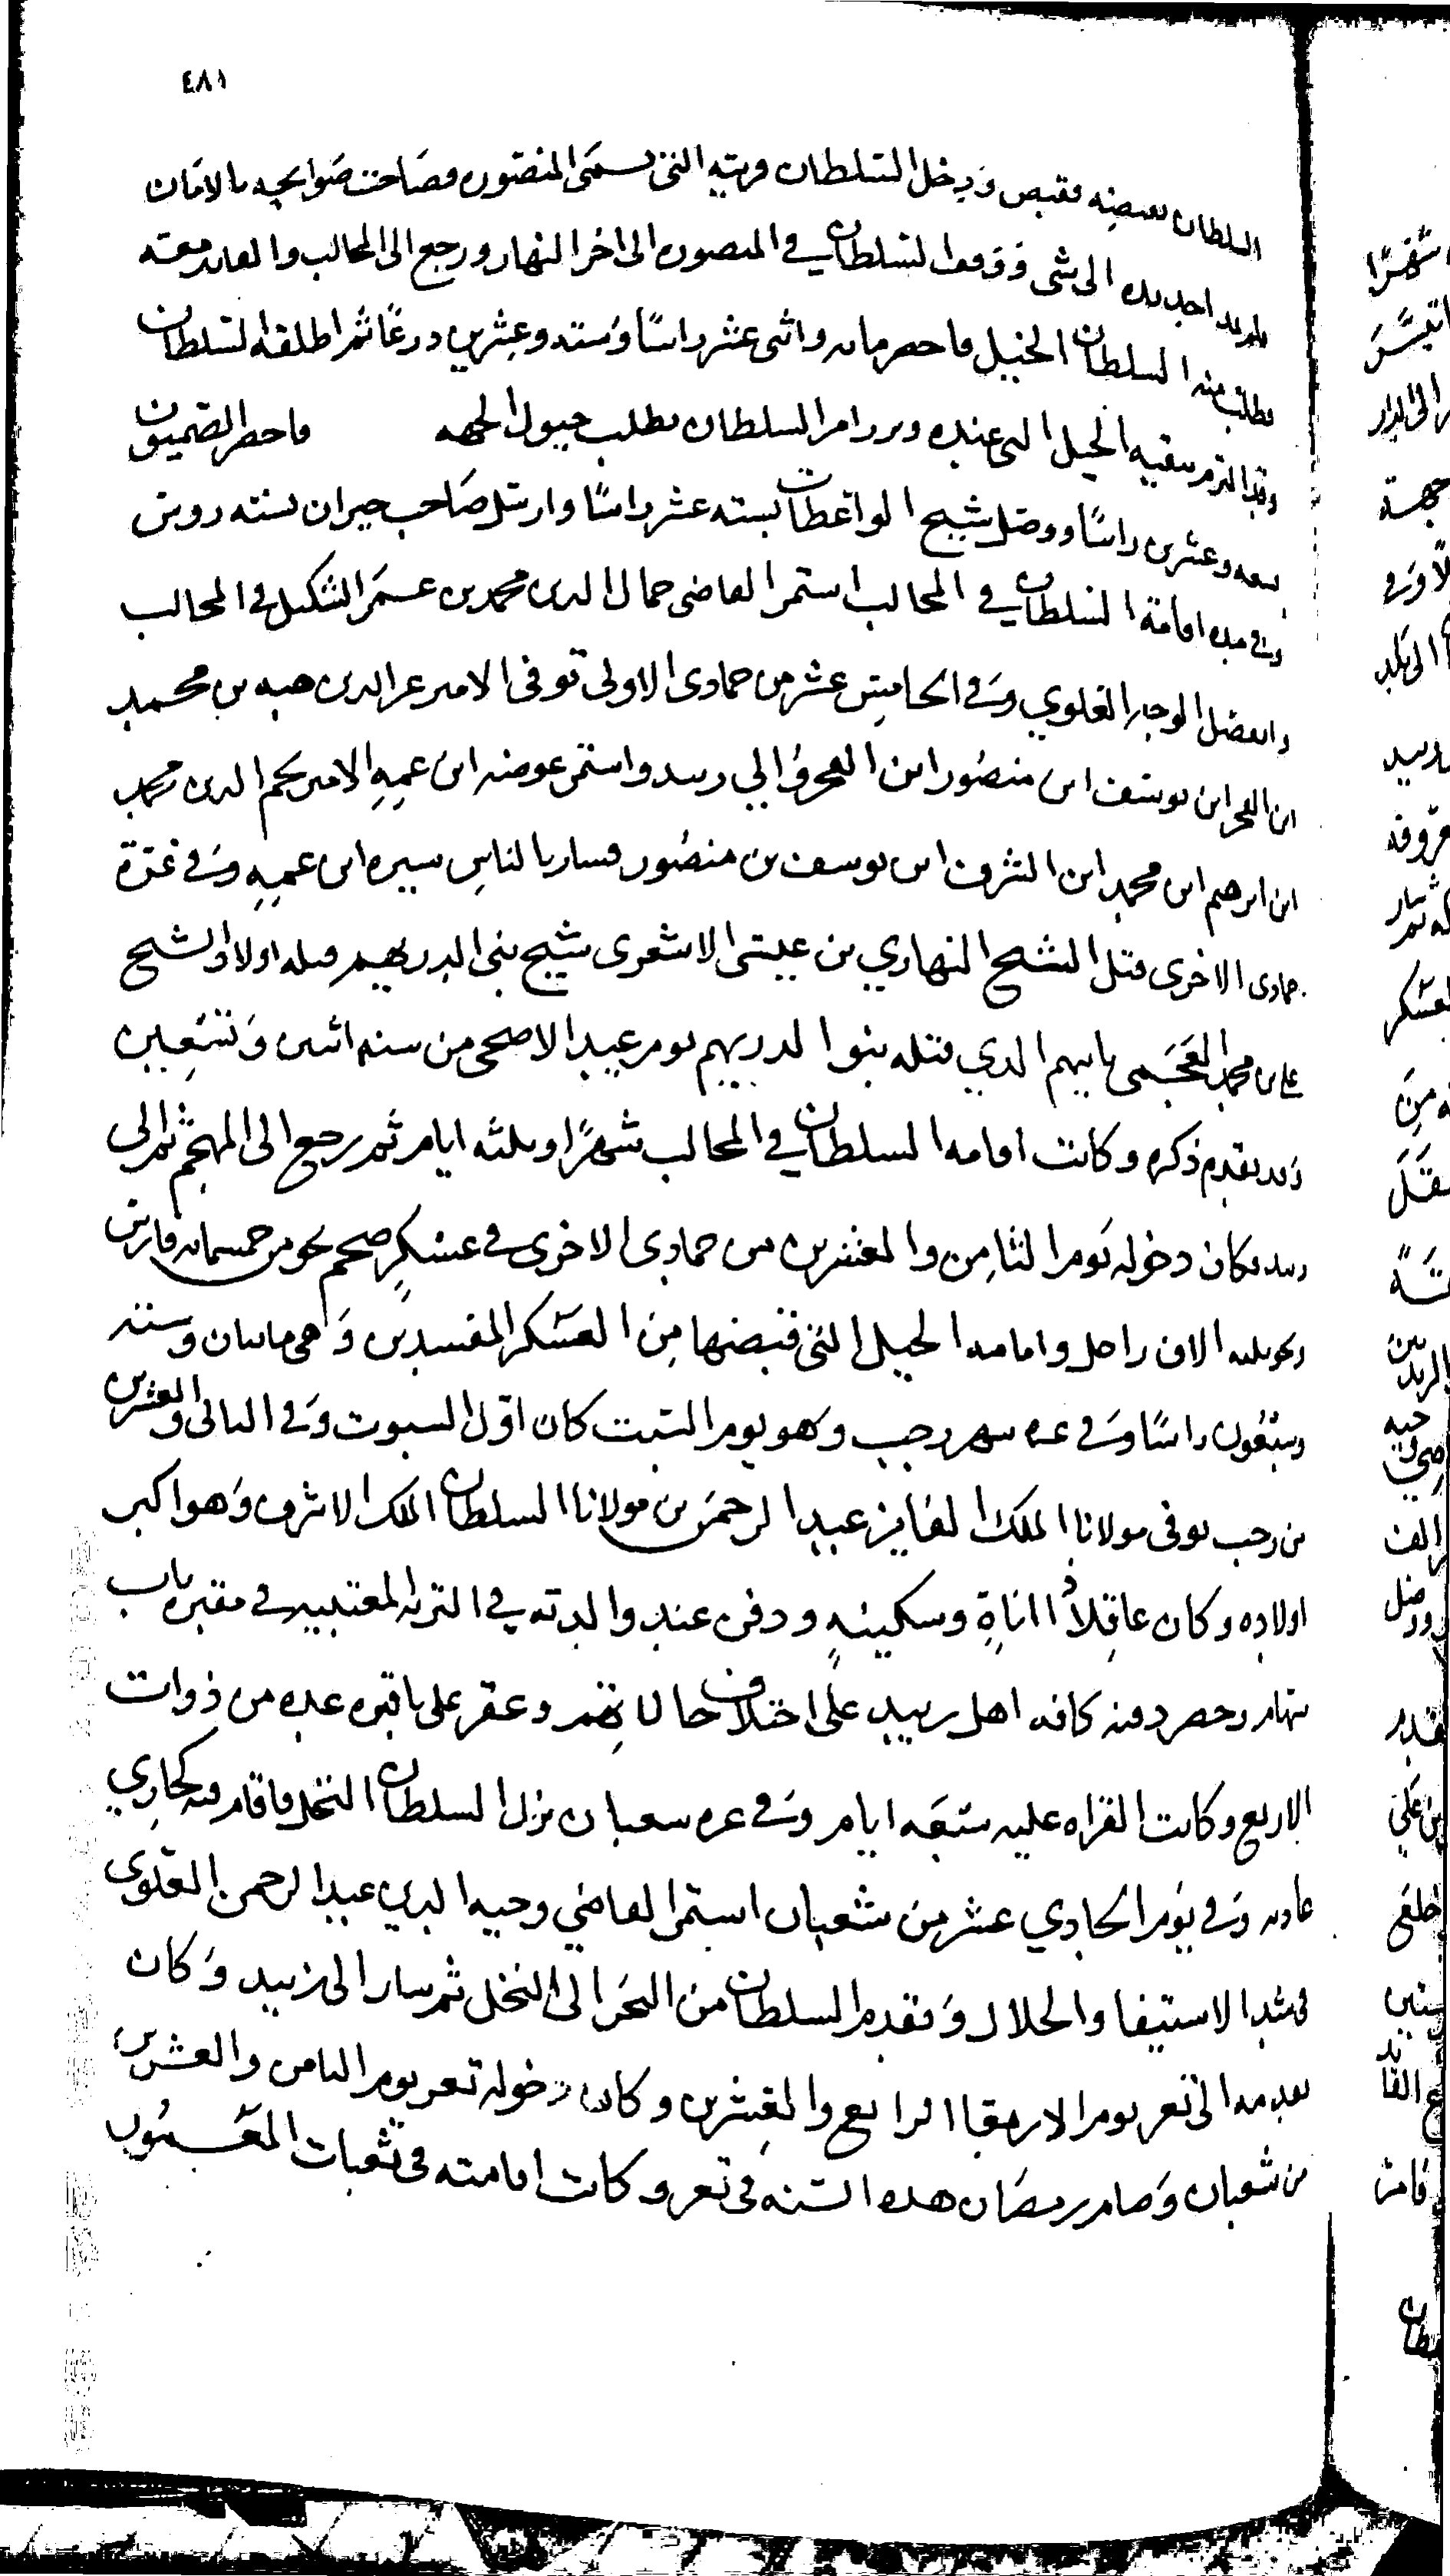 ٤٨١
السلطان بقبضه فقبض ودخل السلطان قريته التى تسمى المنصوره فصاحت صوايحه بالامان
ولم يمد احد يده الى شى فوقف السلطان في المنصوره الى اخر النهار ورجع الى المحالب والقايد معه
فطلب منه السلطان الخيل فاحضر مايه واثنى عشر راسًا وستة وعشرين درعًا ثم اطلقه السلطان
وقد التزم ببقيه الخيل التى عنده وبرز امر السلطان بطلب خيول الجهه فاحضر الضميون
سبعه وعشرين راسًا ووصل شيخ الواعظات بسته عشر راسًا وارسل صاحب حيران بسته روس
وفى مده اقامة السلطان في المحالب استمر القاضى جمال الدين محمد بن عمر الشكيل في المحالب
وانفصل الوجيه العلوي وفي الخامس عشر من جمادى الاولى توفى الامير عز الدين هبه بن محمد
ابن الفخر ابن يوسف ابن منصور ابن الفخر والي زبيد واستمر عوضه ابن عمه الامير نجم الدين محمد
ابن ابرهيم ابن محمد ابن الشرف ابن يوسف بن منصور فسار بالناس سيره ابن عمه وفى غرة
جمادى الاخرى قتل الشيخ النهاري بن عيسى الاشعرى شيخ بنى الدريهم قتله اولاد الشيخ
على بن محمد العجمى بابيهم الذي قتله بنوا الدريهم يوم عيد الاضحى من سنه اثنين وتسعين
وقد تقدم ذكره وكانت اقامه السلطان في المحالب شهرًا وثلثه ايام ثم رجع الى المهجم ثم الى
زبيد فكان دخوله يوم الثامن والعشرين من جمادى الاخرى فى عسكرٍ ضخم نحو من خمسمايه فارس
ونحو ثلثه الاف راجل وامامه الخيل التى قبضها من العسكر المفسدين وهى مايتان وسته
وسبعون راسًا وفى غره شهر رجب وهو يوم السبت كان اول السبوت وفى الثانى والعشرين
من رجب توفى مولانا الملك الفايز عبد الرحمن بن مولانا السلطان الملك الاشرف وهو اكبر
اولاده وكان عاقلاً ذا اناةٍ وسكينهٍ ودفن عند والدته في التربه المعتبيه في مقبره باب
سهام وحضر دفنه كافه اهل زبيد على اختلاف حالاتهم وعقر على باقبره عده من ذوات
الاربع وكانت القراه عليه سبعه ايام وفى غره شعبان نزل السلطان النخل فاقام فيه كجاري
عادته وفى يوم الحادي عشر من شعبان استمر القاضي وجيه الدين عبد الرحمن العلوى
فى شد الاستيفا والحلال وتقدم السلطان من البحر الى النخل ثم سار الى زبيد وكان
تقدمه الى تعز يوم الاربعا الرابع والعشرين وكان دخوله تعز يوم الثامن والعشرين
من شعبان وصام رمضان هذه السنه فى تعز وكانت اقامته فى ثعبات المعمور